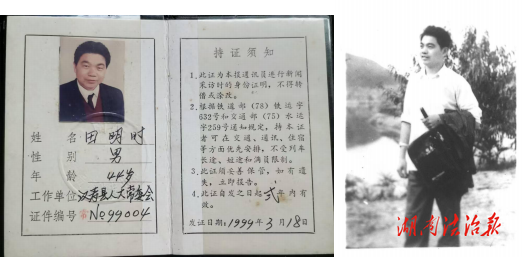 姓 名 田明时
性 别 男
年 龄 44岁
工作单位 汉寿县人大常委会
证件编号 №99004
持 证 须 知
1.此证为本报通讯员进行新闻
采访时的身份证明，不得转
借或涂改。
2.根据铁道部（78）铁运字
632号和交通部（75）水运
字259号通知规定，持本证
者可在交通、通讯、住宿
等方面优先安排，不受列车
长途、短途和满员限制。
3.此证须妥善保管，如有遗
失，立即报告。
4.此证自发之日起贰年内有
效。
发证日期：1999年3月18日
湖南法治报